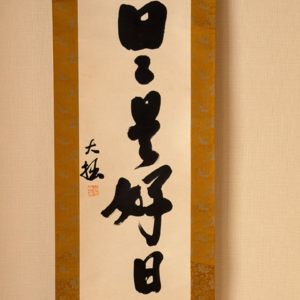 日々是好日
大拙